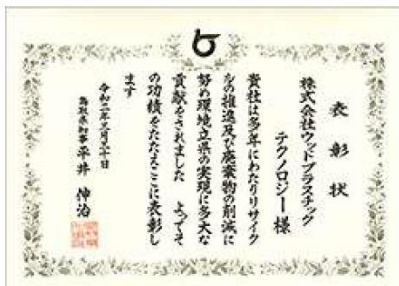 表彰状
株式会社ウッドプラスチック
テクノロジー様
貴社は多年にわたりリサイク
ルの推進及び廃棄物の削減に
努め環境立県の実現に多大な
貢献をされました よってそ
の功績をたたえここに表彰し
ます
鳥取県知事 平井伸治